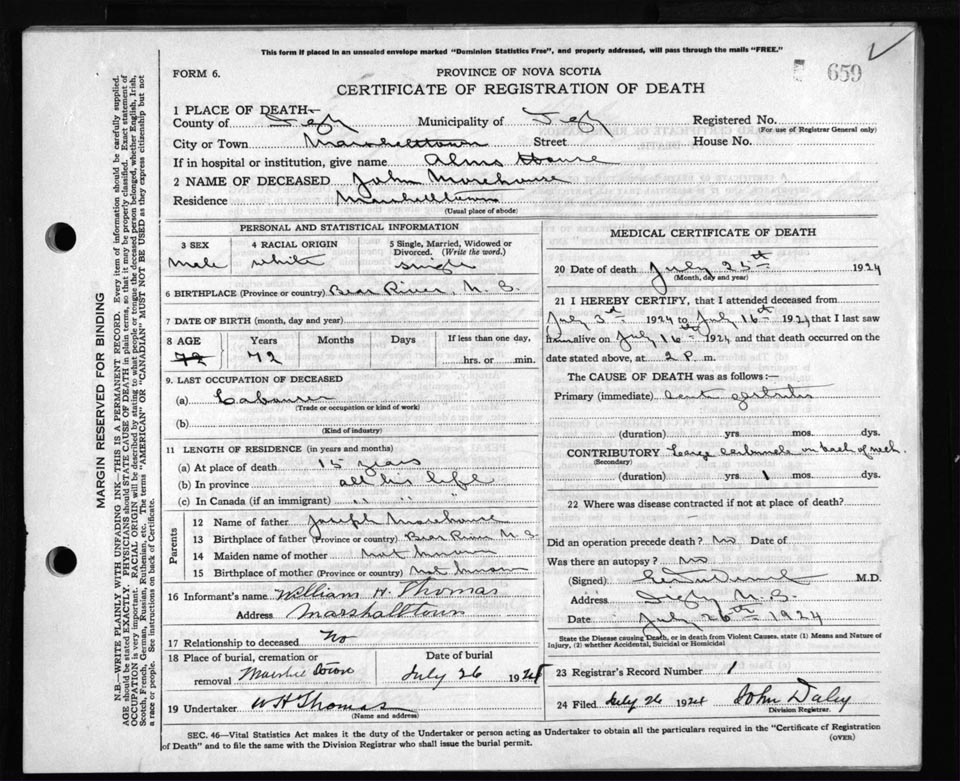 This form if placed in an unsealed envelope marked "Dominion Statistics Free", and properly addressed, will pass through the mails "FREE."
659
FORM 6.
PROVINCE OF NOVA SCOTIA
CERTIFICATE OF REGISTRATION OF DEATH
1 PLACE OF DEATH—
County of Digby Municipality of Digby Registered No.
(For use of Registrar General only)
City or Town Marshalltown Street House No.
If in hospital or institution, give name Alms House
2 NAME OF DECEASED John Morehouse
Residence Marshalltown
(Usual place of abode)
PERSONAL AND STATISTICAL INFORMATION
3 SEX 4 RACIAL ORIGIN 5 Single, Married, Widowed or Divorced. (Write the word.)
male white single
6 BIRTHPLACE (Province or country) Bear River, N.S.
7 DATE OF BIRTH (month, day and year)
8 AGE Years Months Days If less than one day,
72 72 hrs. or min.
9. LAST OCCUPATION OF DECEASED
(a) Labourer
(Trade or occupation or kind of work)
(b)
(Kind of industry)
11 LENGTH OF RESIDENCE (in years and months)
(a) At place of death 15 years
(b) In province all his life
(c) In Canada (if an immigrant) " " "
Parents
12 Name of father Joseph Morehouse
13 Birthplace of father (Province or country) Bear River N.S.
14 Maiden name of mother not known
15 Birthplace of mother (Province or country) Not known
16 Informant's name William H. Thomas
Address Marshalltown
17 Relationship to deceased No
18 Place of burial, cremation or removal Marshalltown
Date of burial July 26 1924
19 Undertaker W H Thomas
(Name and address)
MEDICAL CERTIFICATE OF DEATH
20 Date of death July 25th 1924
(Month, day and year)
21 I HEREBY CERTIFY, that I attended deceased from
July 3rd 1924 to July 16th 1924 that I last saw
him alive on July 16th 1924 and that death occurred on the
date stated above, at 2 P. m.
The CAUSE OF DEATH was as follows:—
Primary (immediate) acute gastritis
(duration) yrs. mos. dys.
CONTRIBUTORY Large carbuncle on back of neck.
(Secondary)
(duration) yrs 1 mos. dys.
22 Where was disease contracted if not at place of death?
Did an operation precede death? No Date of
Was there an autopsy? No
(Signed) M.D.
Address Digby N.S.
Date July 26th 1924
State the Disease causing Death, or in death from Violent Causes, state (1) Means and Nature of
Injury, (2) whether Accidental, Suicidal or Homicidal
23 Registrar's Record Number 1
24 Filed July 26 1924 John Daley
Division Registrar.
SEC. 46—Vital Statistics Act makes it the duty of the Undertaker or person acting as Undertaker to obtain all the particulars required in the "Certificate of Registration
of Death" and to file the same with the Division Registrar who shall issue the burial permit.
(OVER)
MARGIN RESERVED FOR BINDING
N.B.—WRITE PLAINLY WITH UNFADING INK—THIS IS A PERMANENT RECORD. Every item of information should be carefully supplied.
AGE should be stated EXACTLY. PHYSICIANS should STATE CAUSE OF DEATH in plain terms, so that it may be properly classified. Exact statement of
OCCUPATION is very important. RACIAL ORIGIN will be described by stating to what people or tongue the deceased person belonged, whether English, Irish,
Scotch, French, German, Russian, Ruthenian, etc. The terms "AMERICAN" or "CANADIAN" MUST NOT BE USED as they express citizenship but not
a race or people. See instructions on back of Certificate.